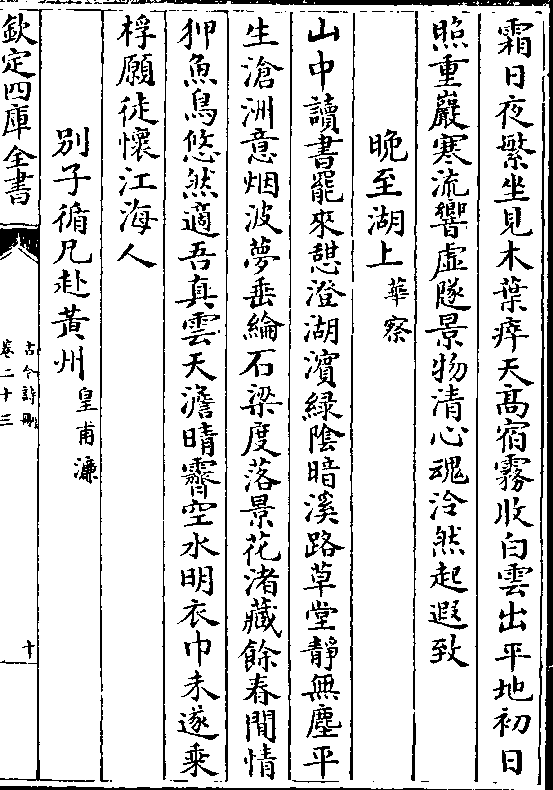 霜日夜繁坐見木葉瘁天高宿霧收白雲出平地初日
照重巖寒流響虛隧景物清心魂泠然起遐致
晚至湖上 華察
山中讀書罷來憇澄湖濱緑陰暗溪路草堂靜無塵平
生滄洲意烟波夢垂綸石梁度落景花渚藏餘春閒情
狎魚鳥悠然適吾真雲天澹晴霽空水明衣巾未遂乗
桴願徒懷江海人
别子循兄赴黄州 皇甫濂
欽定四庫全書
古今詩刪
卷二十三
十